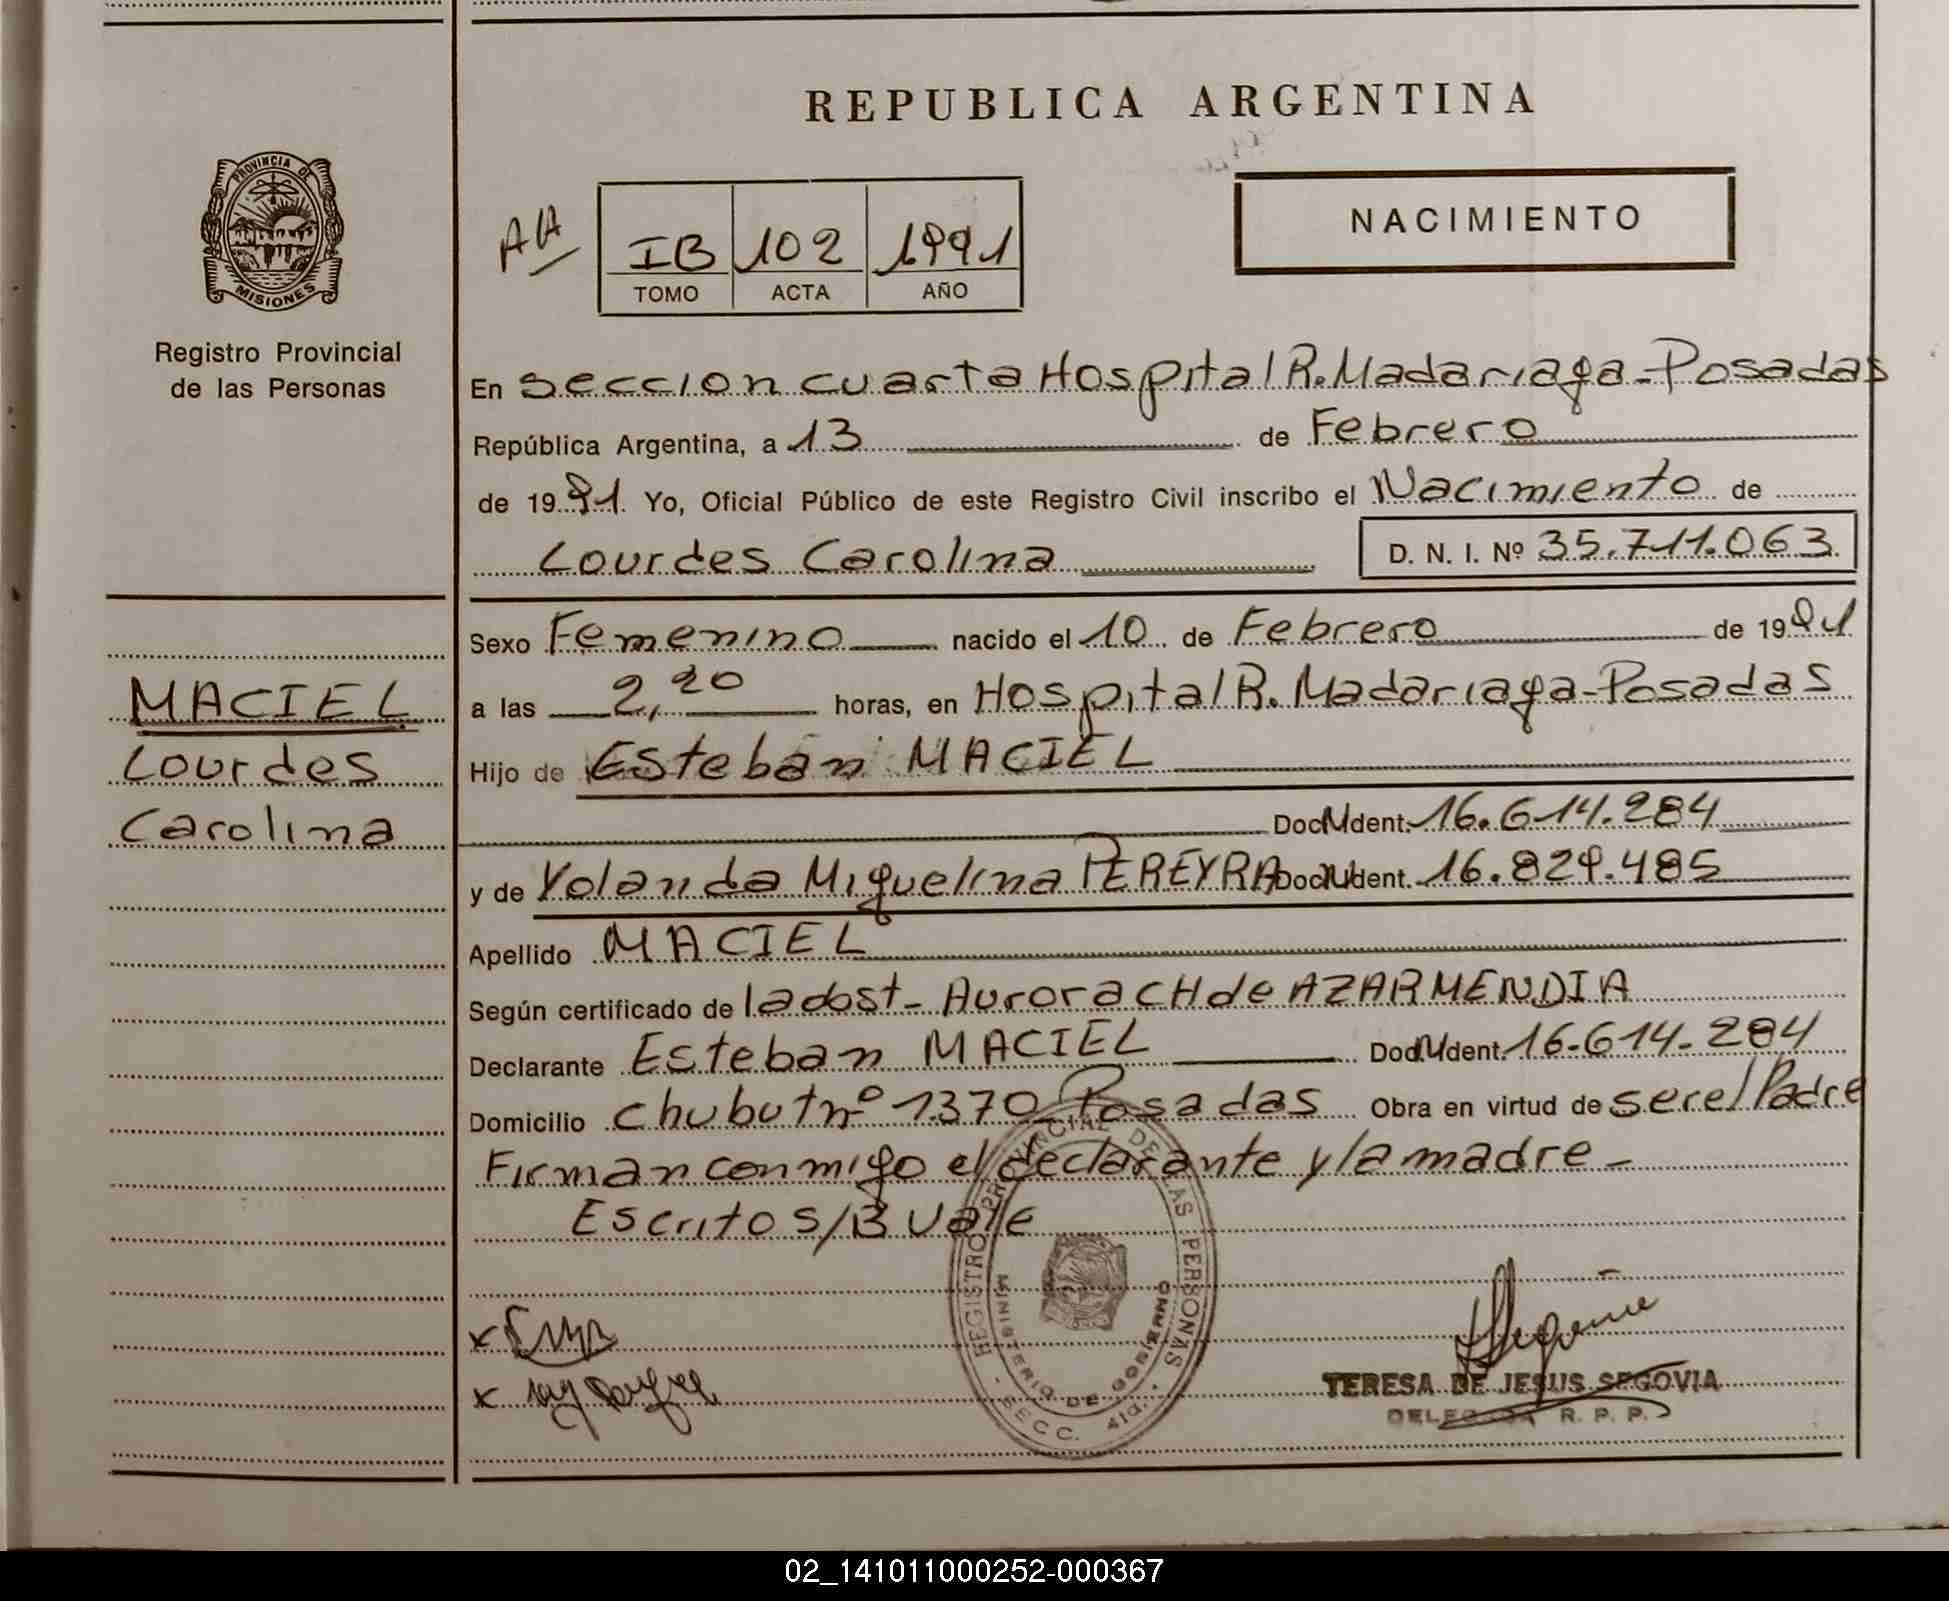 REPUBLICA ARGENTINA
PROVINCIA DE
MISIONES
Registro Provincial
de las Personas
AA
IB 102 1991
TOMO ACTA AÑO
NACIMIENTO
En Seccion cuarta Hospital R. Madariaga - Posadas
República Argentina, a 13 de Febrero
de 1991 Yo, Oficial Público de este Registro Civil inscribo el Nacimiento de
Lourdes Carolina D. N. I. Nº 35.711.063
Sexo Femenino nacido el 10 de Febrero de 1991
MACIEL
Lourdes
Carolina
a las 2,20 horas, en Hospital R. Madariaga - Posadas
Hijo de Esteban MACIEL
Doc. Ident. 16.614.284
y de Yolanda Miguelina PEREYRA Doc. Ident. 16.829.485
Apellido MACIEL
Según certificado de la obst - Aurora CH de AZARMENDIA
Declarante Esteban MACIEL Doc. Ident. 16-614-284
Domicilio Chubut nº 1370 Posadas Obra en virtud de ser el Padre
Firman conmigo el declarante y la madre -
Escrito S/B Vale
REGISTRO PROVINCIAL DE LAS PERSONAS
MINISTERIO DE GOBIERNO
- SECC. 4ta. -
x
x
TERESA DE JESUS SEGOVIA
DELEGADA R. P. P.
02_141011000252-000367